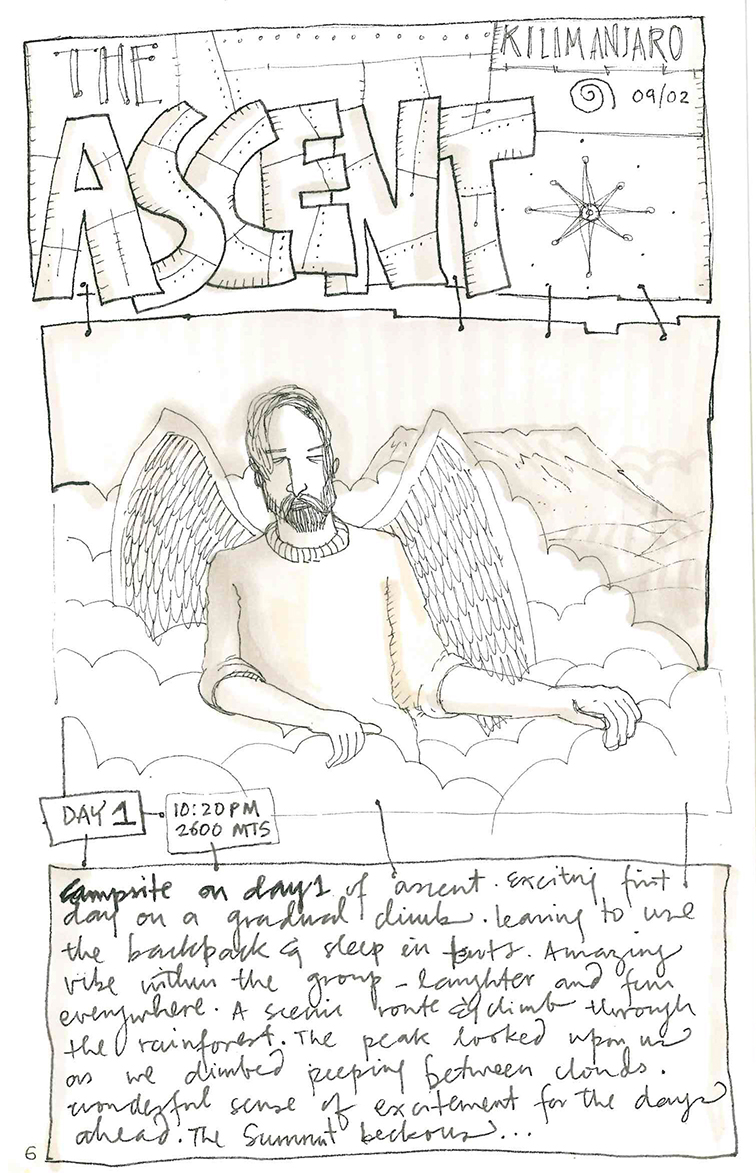 THE
ASCENT
KILIMANJARO
09/02
DAY 1
10:20 PM
2600 MTS
Campsite on day 1 of ascent. Exciting first
day on a gradual climb. Learning to use
the backpack & sleep in tents. Amazing
vibe within the group - laughter and fun
everywhere. A scenic route & climb through
the rainforest. The peak looked upon us
as we climbed peeping between clouds.
wonderful sense of excitement for the days
ahead. The Summit beckons...
6